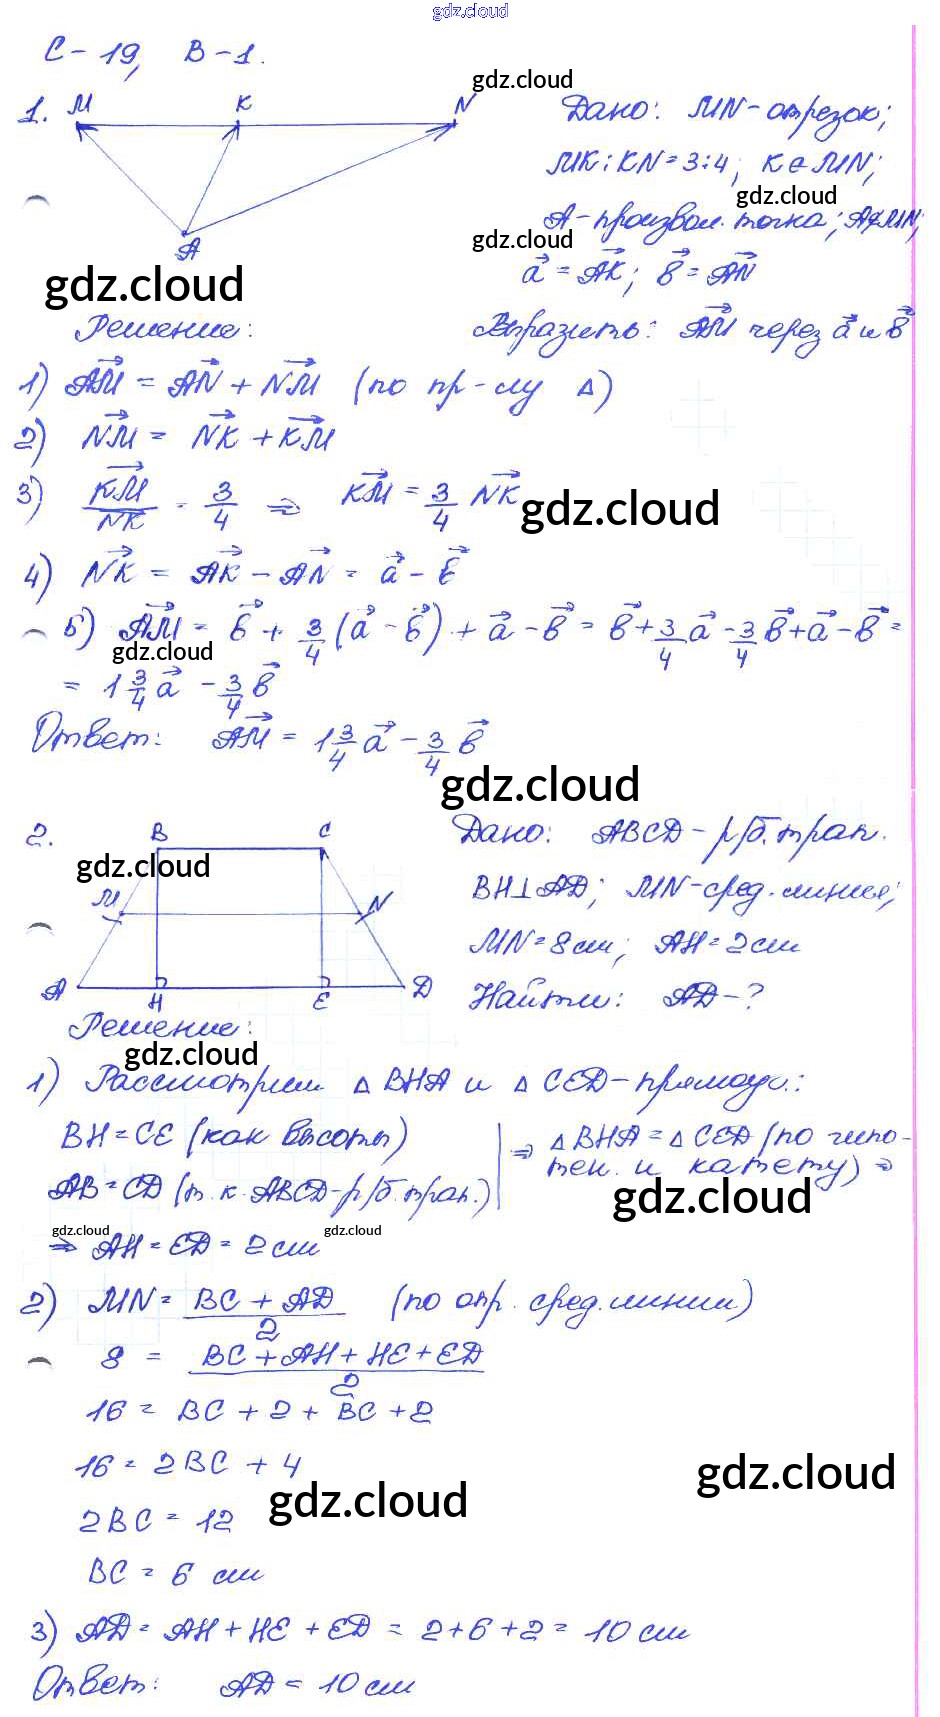 gdz.cloud
С-19, В-1.
1. M K N A
gdz.cloud
Дано: MN-отрезок;
MK:KN=3:4; K∈MN;
gdz.cloud
A-произвол. точка; A∉MN;
gdz.cloud
a⃗ = AK⃗; b⃗ = AN⃗
gdz.cloud
Решение:
Выразить: AM⃗ через a⃗ и b⃗
1) AM⃗ = AN⃗ + NM⃗ (по пр-лу Δ)
2) NM⃗ = NK⃗ + KM⃗
3) KM⃗/NK⃗ = 3/4 ⇒ KM⃗ = 3/4 NK⃗
gdz.cloud
4) NK⃗ = AK⃗ - AN⃗ = a⃗ - b⃗
5) AM⃗ = b⃗ + 3/4(a⃗ - b⃗) + a⃗ - b⃗ = b⃗ + 3/4 a⃗ - 3/4 b⃗ + a⃗ - b⃗ =
gdz.cloud
= 1 3/4 a⃗ - 3/4 b⃗
Ответ: AM⃗ = 1 3/4 a⃗ - 3/4 b⃗
gdz.cloud
2. B C M N A H E D
gdz.cloud
Дано: ABCD-р/б. трап.
BH⊥AD; MN-сред. линия;
MN=8см; AH=2см
Найти: AD-?
Решение:
gdz.cloud
1) Рассмотрим Δ BHA и Δ CED-прямоуг.:
BH=CE (как высоты)
AB=CD (т.к. ABCD-р/б. трап.)
⇒ Δ BHA = Δ CED (по гипо-
тен. и катету) ⇒
gdz.cloud
gdz.cloud gdz.cloud
⇒ AH = ED = 2см
2) MN = (BC + AD)/2 (по опр. сред. линии)
8 = (BC + AH + HE + ED)/2
16 = BC + 2 + BC + 2
16 = 2BC + 4
gdz.cloud
gdz.cloud
2BC = 12
BC = 6 см
3) AD = AH + HE + ED = 2+6+2 = 10 см
Ответ: AD = 10 см